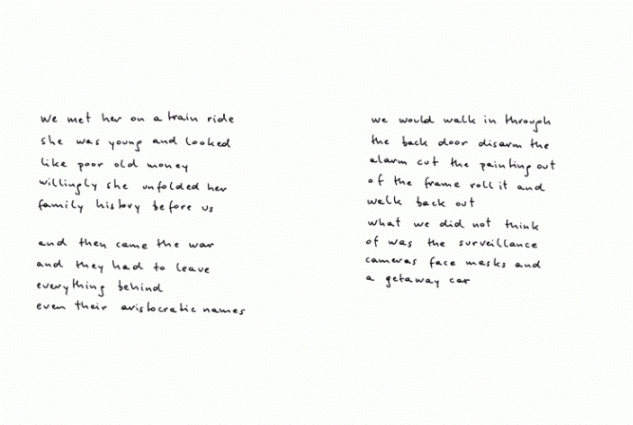 we met her on a train ride
she was young and looked
like poor old money
willingly she unfolded her
family history before us
and then came the war
and they had to leave
everything behind
even their aristocratic names
we would walk in through
the back door disarm the
alarm cut the painting out
of the frame roll it and
walk back out
what we did not think
of was the surveillance
cameras face masks and
a getaway car